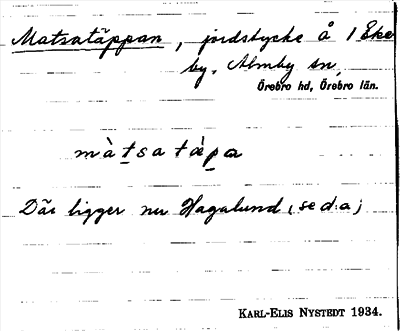 Matsatäppan, jordstycke å 1 Eke
by, Almby sn,
Örebro hd, Örebro län.
màtsatäpa
Där ligger nu Hagalund (se d:a)
KARL-ELIS NYSTEDT 1934.